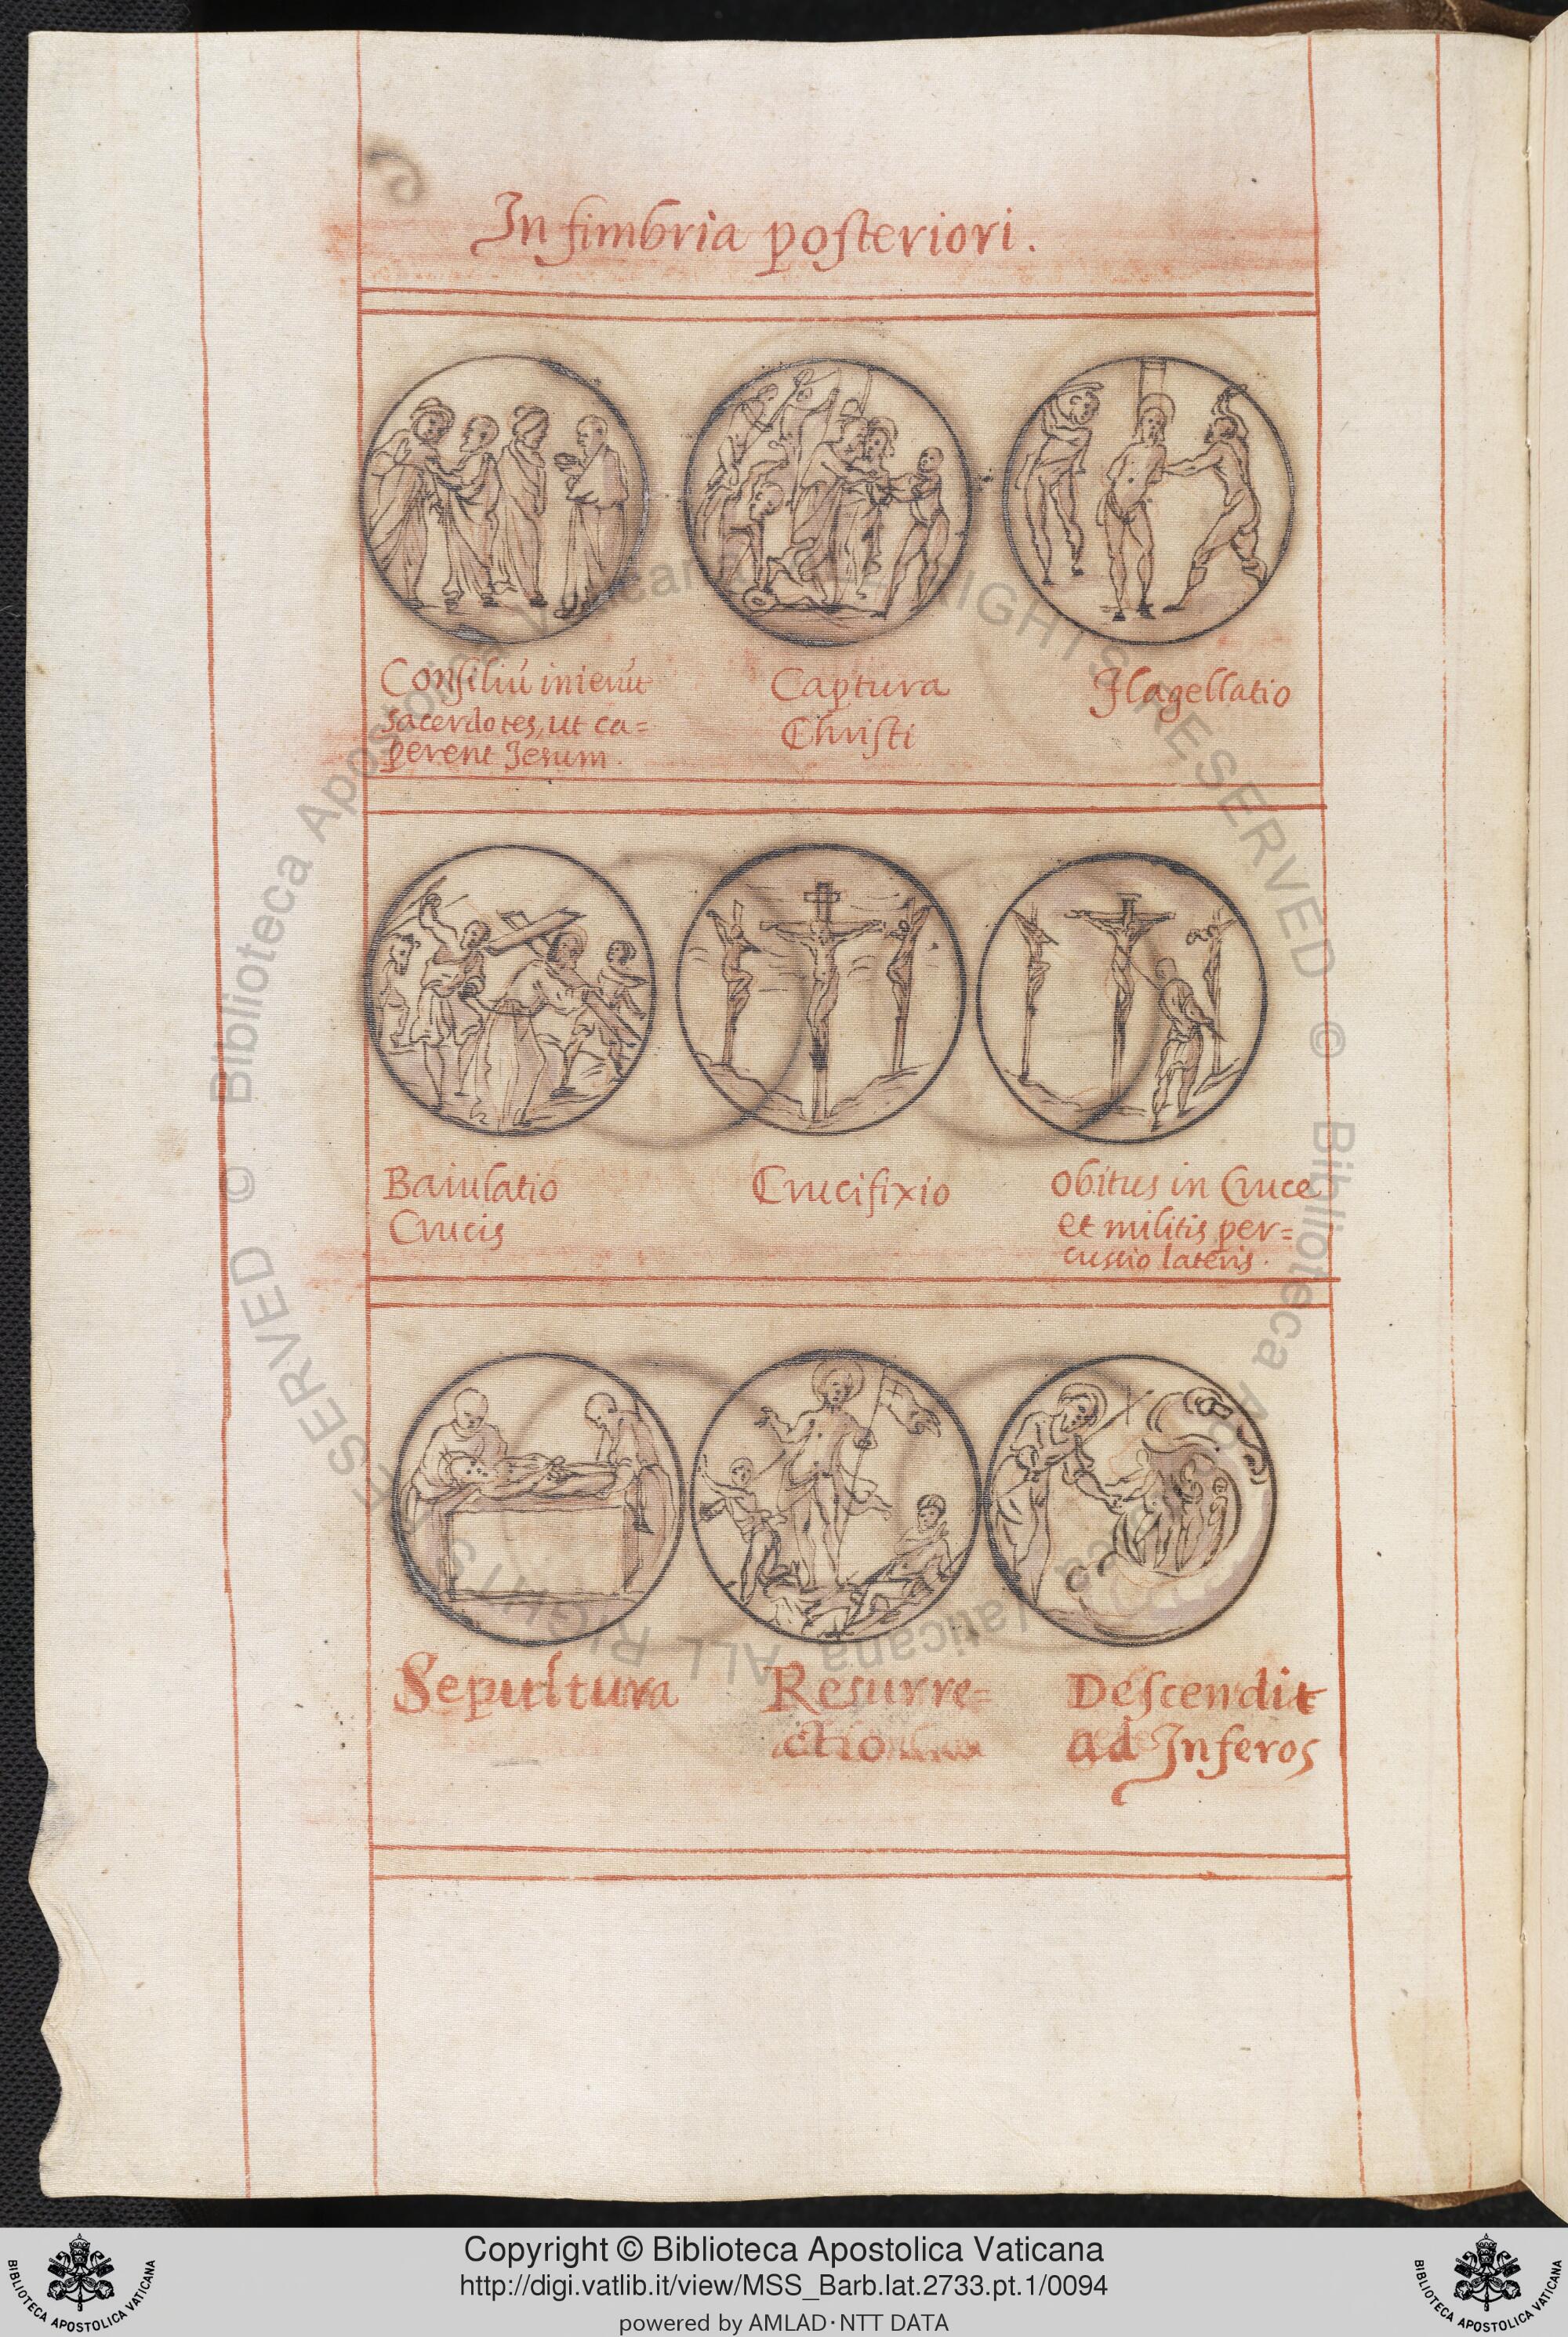 In fimbria posteriori.
Consiliũ inierũt
sacerdotes, ut ca=
perent Jesum.
Captura
Christi
Flagellatio
Baiulatio
Crucis
Crucifixio
Obitus in Cruce
et militis per=
cussio lateris.
Sepultura
Resurre=
ctio
Descendit
ad Inferos
© Biblioteca Apostolica Vaticana ALL RIGHTS RESERVED © Biblioteca Apostolica Vaticana ALL RIGHTS RESERVED
Copyright © Biblioteca Apostolica Vaticana
http://digi.vatlib.it/view/MSS_Barb.lat.2733.pt.1/0094
powered by AMLAD·NTT DATA
BIBLIOTECA APOSTOLICA VATICANA
BIBLIOTECA APOSTOLICA VATICANA